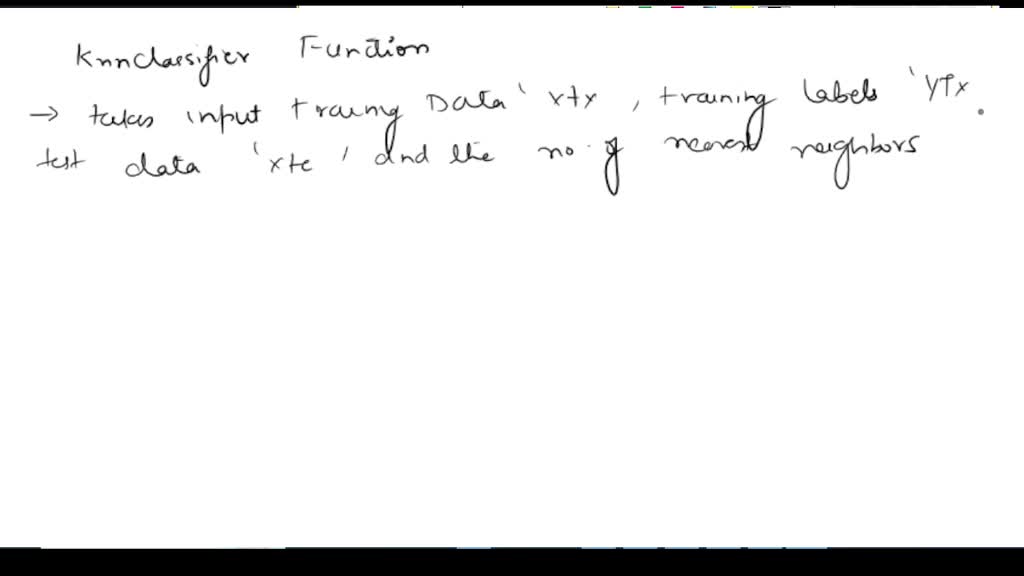 Knnclassifier Function
→ takes input traing Data ' xtx , training labels ' YTx
test data 'xte ' and the no. of nearest neighbors